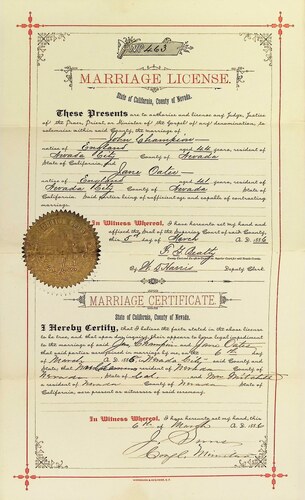 No 463
MARRIAGE LICENSE.
State of California, County of Nevada.
These Presents are to authorize and license any Judge, Justice
of the Peace, Priest, or Minister of the Gospel of any denomination, to
solemnize within said County, the marriage of
John Champion
native of England aged 44 years, resident of
Nevada City County of Nevada
State of California, and
Jane Oates
native of England aged 41 years, resident of
Nevada City County of Nevada
State of California. Said parties being of sufficient age and capable of contracting
marriage.
In Witness Whereof, I have hereunto set my hand and
affixed the Seal of the Superior Court of said County,
this 5th day of March A. D. 1886
By Deputy Clerk.
MARRIAGE CERTIFICATE.
State of California, County of Nevada.
I Hereby Certify, that I believe the facts stated in the above license
to be true, and that upon due inquiry, there appears to be no legal impediment
to the marriage of said Jno Champion and Jane Oates
that said parties were joined in marriage by me, on the 6th day
of March A. D. 1886, in Nevada City said County and
State; that a resident of Nevada County of
Nevada State of Cal and Mrs
a resident of Nevada County of Nevada State of
California, were present as witnesses of said ceremony.
In Witness Whereof, I have hereunto set my hand, this
6th of March A. D. 1886
J.
Minister